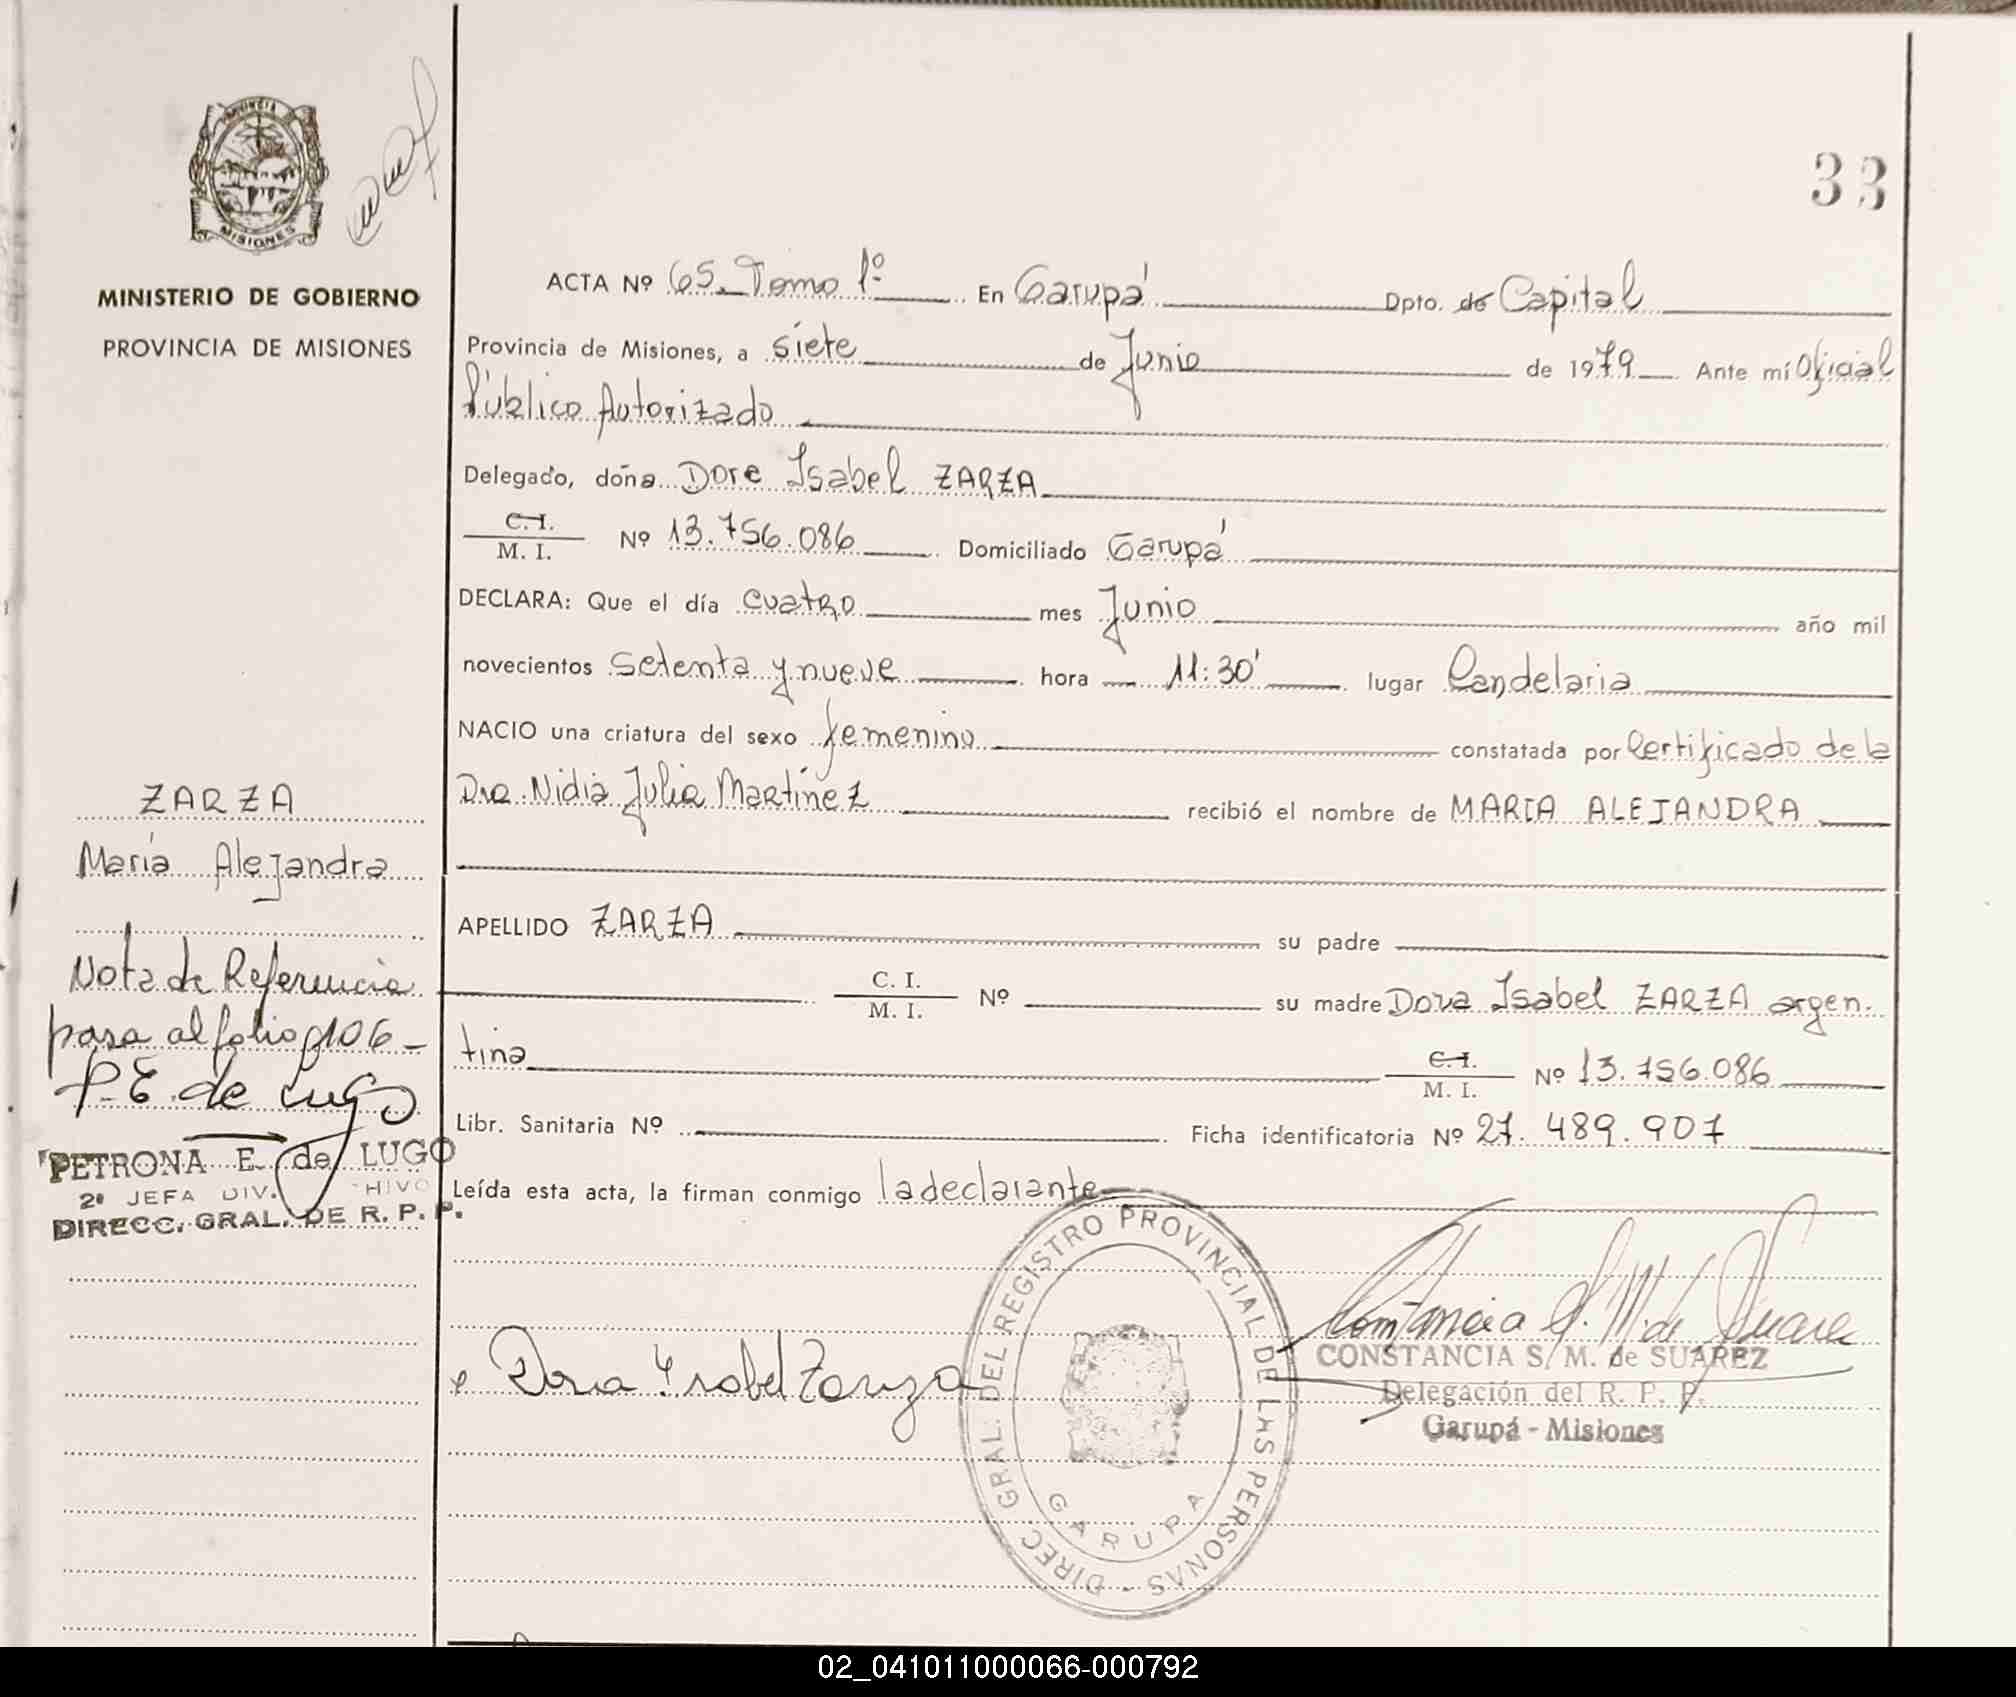 33
PROVINCIA
MISIONES
MINISTERIO DE GOBIERNO
PROVINCIA DE MISIONES
ACTA Nº 65. Tomo 1º En Garupá Dpto. de Capital
Provincia de Misiones, a siete de Junio de 1979 Ante mí Oficial
Público Autorizado
Delegado, doña Dore Isabel ZARZA
C. I.
M. I. Nº 13.756.086 Domiciliado Garupá
DECLARA: Que el día cuatro mes Junio año mil
novecientos setenta y nueve hora 11:30' lugar Candelaria
NACIO una criatura del sexo femenino constatada por Certificado de la
Dra. Nidia Julia Martínez recibió el nombre de MARIA ALEJANDRA
APELLIDO ZARZA su padre
C. I.
M. I. Nº su madre Dora Isabel ZARZA argen.
tina C. I.
M. I. Nº 13.756.086
Libr. Sanitaria Nº Ficha identificatoria Nº 27.489.907
Leída esta acta, la firman conmigo la declarante
ZARZA
María Alejandra
Nota de Referencia
pasa al folio 106 -
P. E de Lugo
PETRONA E. de LUGO
2ª JEFA DIV. HIVO
DIRECC. GRAL. DE R. P. P.
Dora Ysabel Zarza
DIREC GRAL. DEL REGISTRO PROVINCIAL DE LAS PERSONAS -
GARUPA
Constancia S. M. de Suarez
CONSTANCIA S. M. de SUAREZ
Delegación del R. P. P.
Garupá - Misiones
02_041011000066-000792